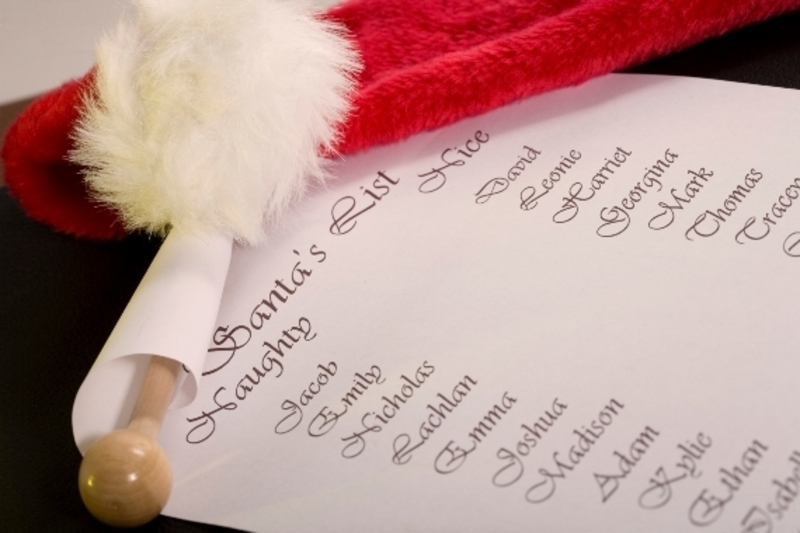 Santa's List
Naughty
Jacob
Emily
Nicholas
Lachlan
Emma
Joshua
Madison
Adam
Kylie
Ethan
Nice
David
Leonie
Harriet
Georgina
Mark
Thomas